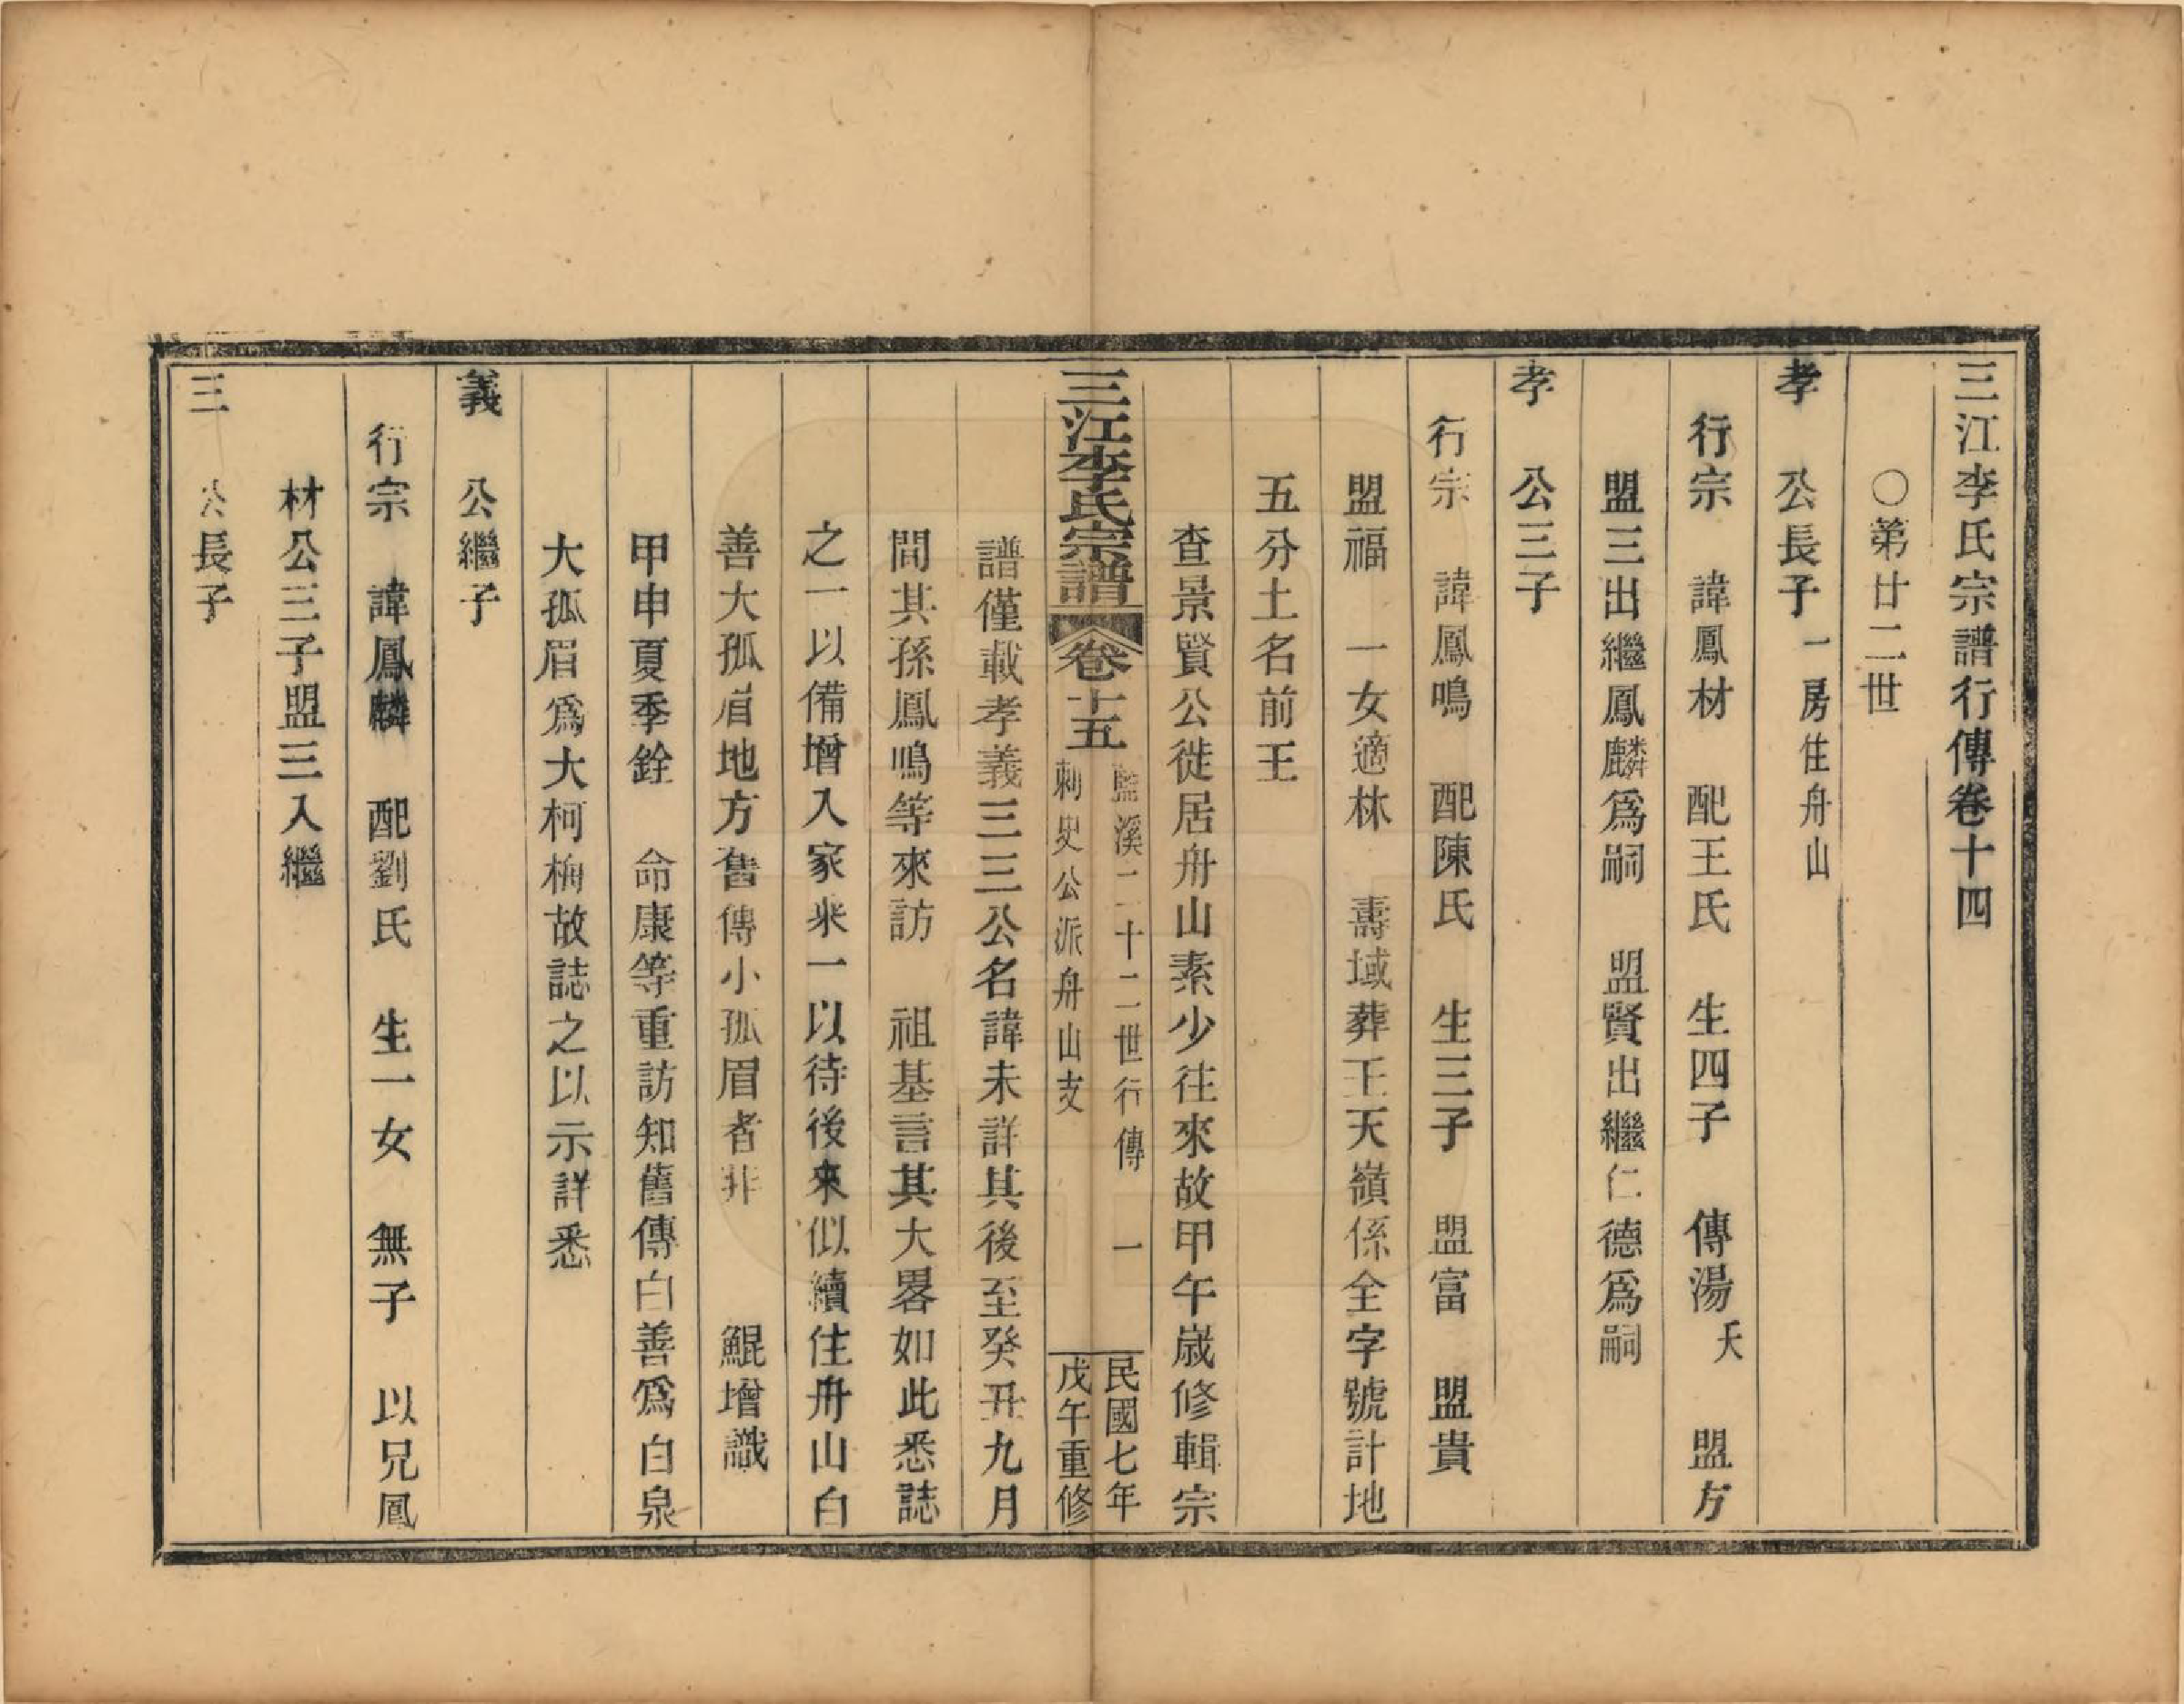 三江李氏宗譜行傳卷十四
〇第廿二世
孝　公長子一房住舟山
行宗　諱鳳材　配王氏　生四子　傳湯夭　盟方
盟三出繼鳳麟爲嗣　盟賢出繼仁德爲嗣
孝　公三子
行宗　諱鳳鳴　配陳氏　生三子　盟富　盟貴
盟福　一女適林　壽域葬王天嶺係全字號計地
五分土名前王
查景賢公徙居舟山素少往來故甲午歲修輯宗
三江李氏宗譜　卷十五　監溪二二十二世行傳　一　民國七年
刺史公派舟山支　戊午重修
譜僅載孝義三三公名諱未詳其後至癸丑九月
間其孫鳳鳴等來訪　祖基言其大畧如此悉誌
之一以備增入家乘一以待後來似續住舟山白
善大孤眉地方舊傳小孤眉者非　鯤增識
甲申夏季銓　命康等重訪知舊傳白善爲白泉
大孤眉爲大柯梅故誌之以示詳悉
義　公繼子
行宗　諱鳳麟　配劉氏　生一女　無子　以兄鳳
材公三子盟三入繼
三　公長子